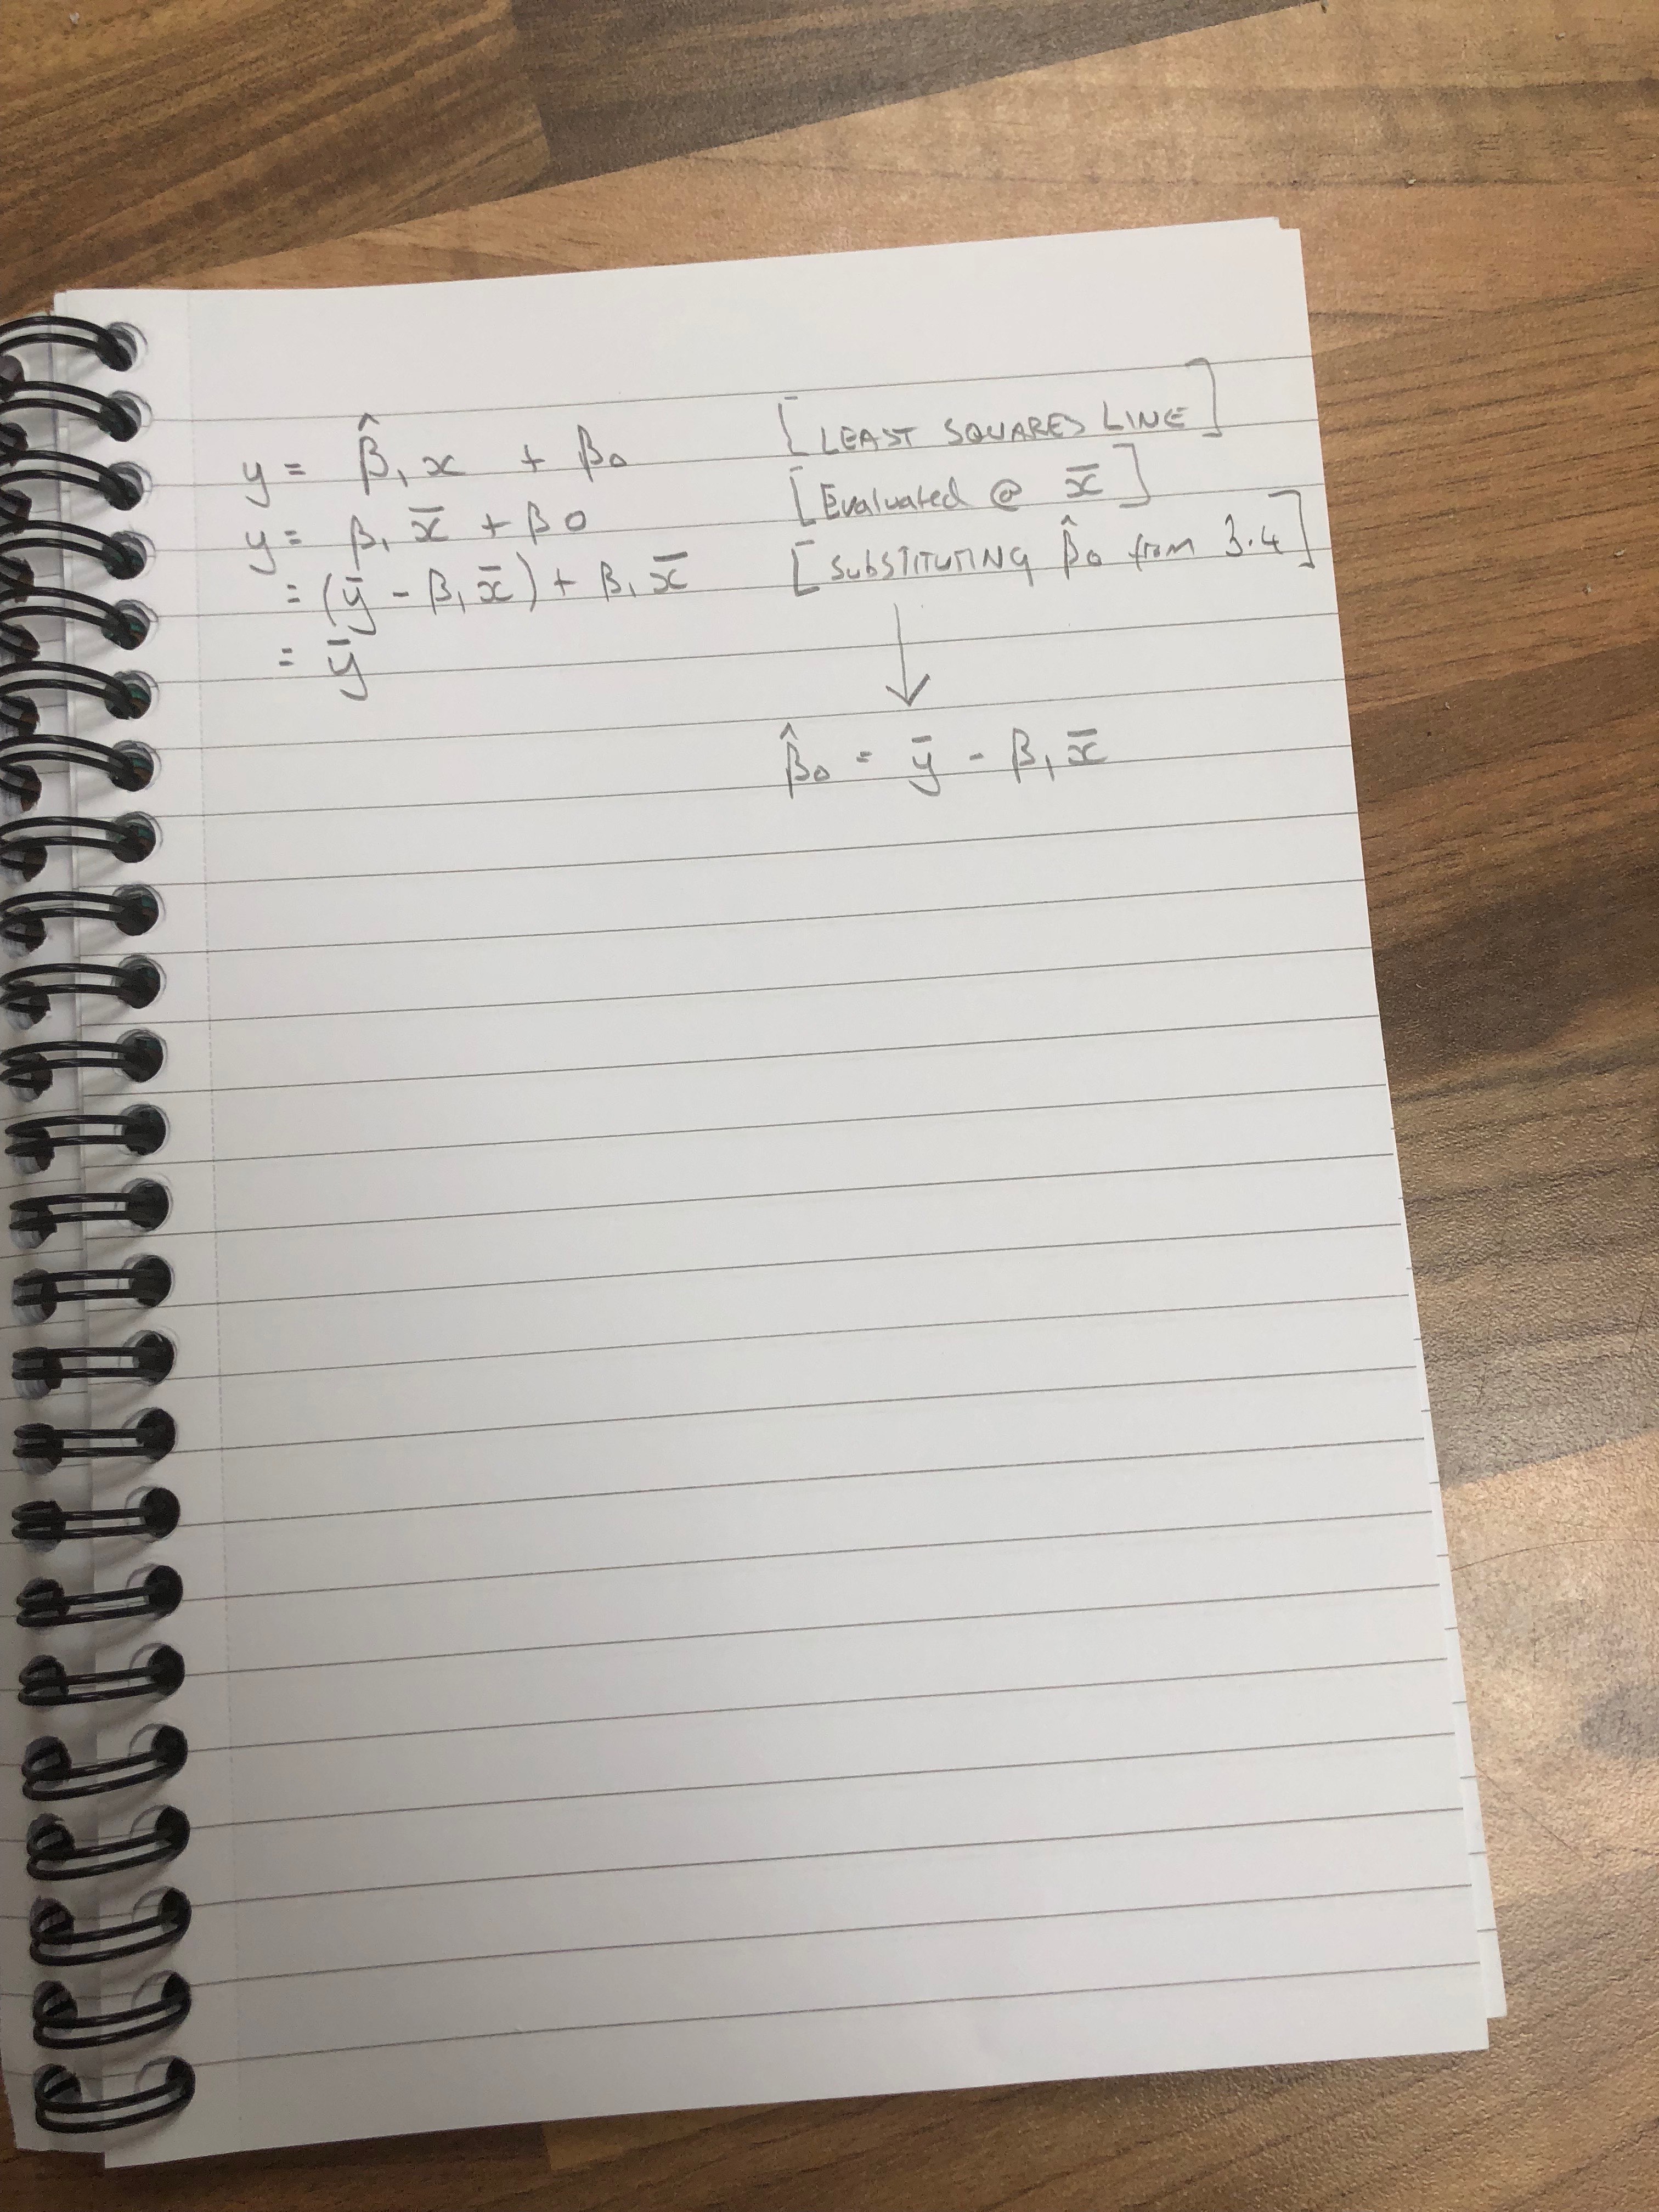 y = β̂₁x + β₀ [LEAST SQUARES LINE]
y = β₁x̄ + β0 [Evaluated @ x̄]
= (ȳ - β₁x̄) + β₁x̄ [SUBSTITUTING β̂₀ from 3.4]
= ȳ
↓
β̂₀ = ȳ - β₁x̄